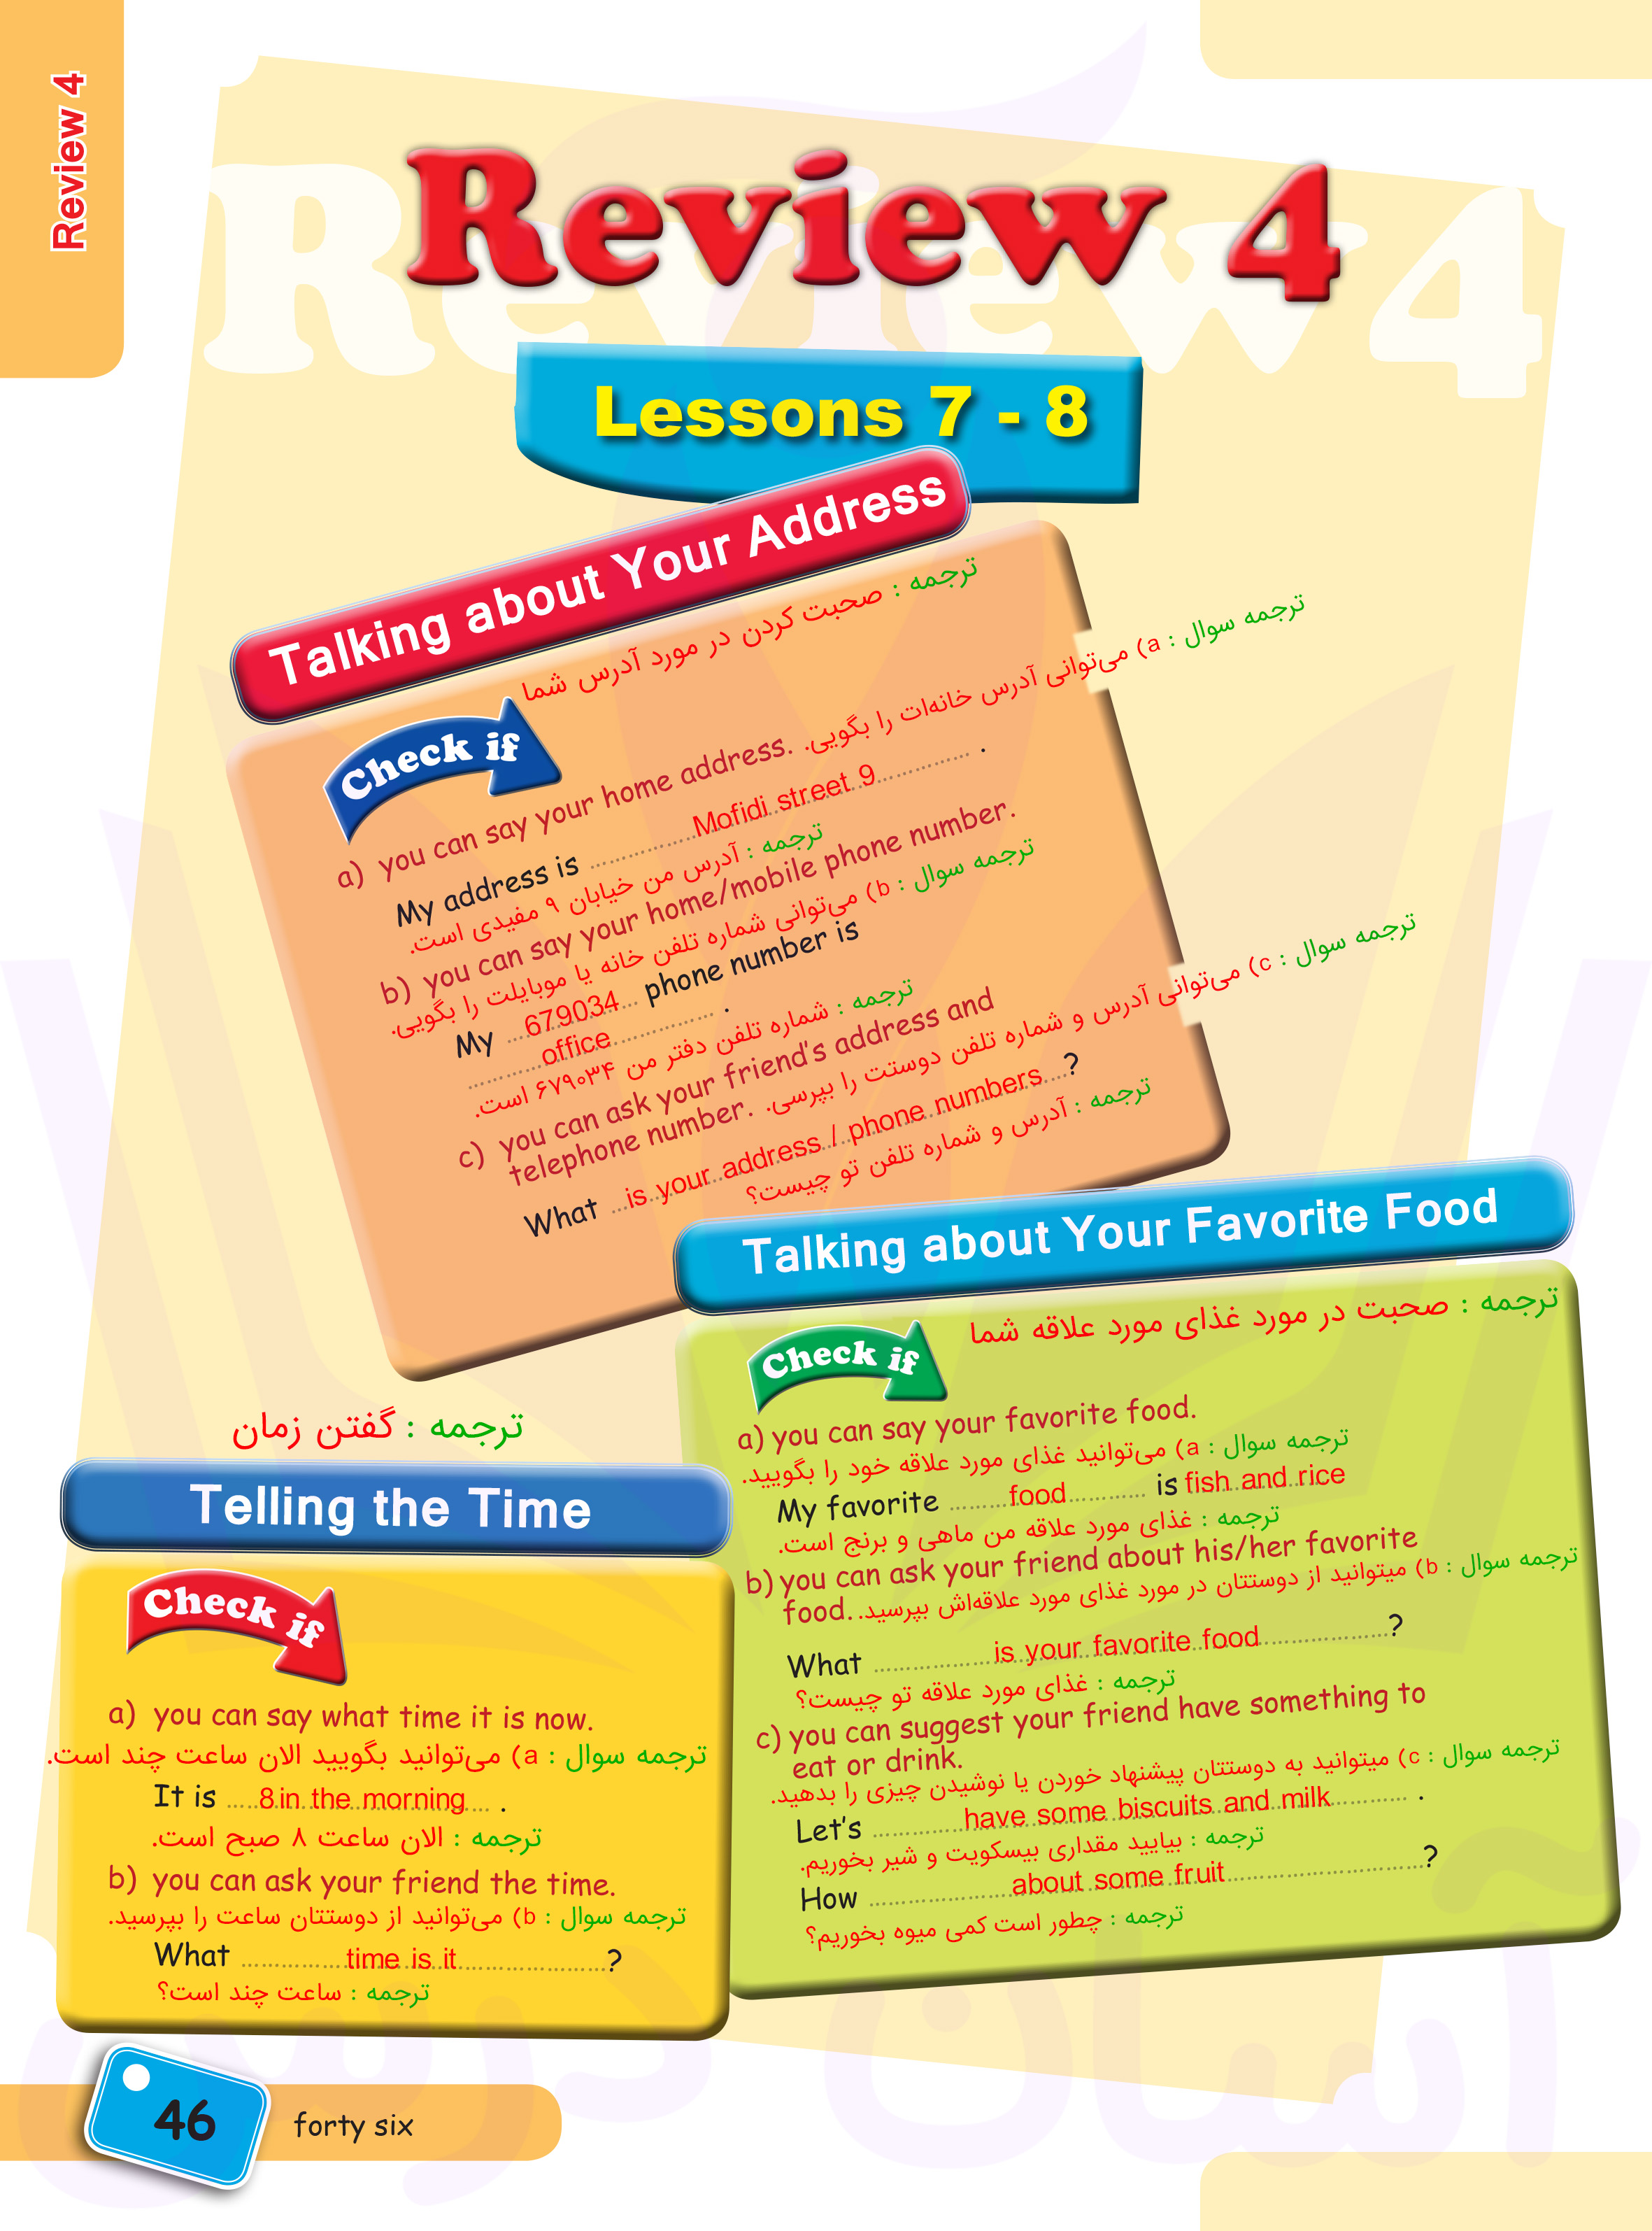 Review 4
Review 4
Review 4
Lessons 7 - 8
Talking about Your Address
ترجمه : صحبت کردن در مورد آدرس شما
Check if
ترجمه سوال : a) می‌توانی آدرس خانه‌ات را بگویی.
a) you can say your home address.
My address is ........ Mofidi street 9 ........ .
ترجمه : آدرس من خیابان ۹ مفیدی است.
b) you can say your home/mobile phone number.
ترجمه سوال : b) می‌توانی شماره تلفن خانه یا موبایلت را بگویی.
My ... 679034 ... phone number is
........ office ........ .
ترجمه : شماره تلفن دفتر من ۶۷۹۰۳۴ است.
c) you can ask your friend's address and
telephone number.
ترجمه سوال : c) می‌توانی آدرس و شماره تلفن دوستت را بپرسی.
What ... is your address / phone numbers ...?
ترجمه : آدرس و شماره تلفن تو چیست؟
Talking about Your Favorite Food
ترجمه : صحبت در مورد غذای مورد علاقه شما
Check if
a) you can say your favorite food.
ترجمه سوال : a) می‌توانید غذای مورد علاقه خود را بگویید.
My favorite ........ food ........ is fish and rice
ترجمه : غذای مورد علاقه من ماهی و برنج است.
b) you can ask your friend about his/her favorite
food.
ترجمه سوال : b) میتوانید از دوستتان در مورد غذای مورد علاقه‌اش بپرسید.
What ........ is your favorite food ........?
ترجمه : غذای مورد علاقه تو چیست؟
c) you can suggest your friend have something to
eat or drink.
ترجمه سوال : c) میتوانید به دوستتان پیشنهاد خوردن یا نوشیدن چیزی را بدهید.
Let's ........ have some biscuits and milk ........ .
ترجمه : بیایید مقداری بیسکویت و شیر بخوریم.
How ........ about some fruit ........?
ترجمه : چطور است کمی میوه بخوریم؟
ترجمه : گفتن زمان
Telling the Time
Check if
a) you can say what time it is now.
ترجمه سوال : a) می‌توانید بگویید الان ساعت چند است.
It is ... 8 in the morning ... .
ترجمه : الان ساعت ۸ صبح است.
b) you can ask your friend the time.
ترجمه سوال : b) می‌توانید از دوستتان ساعت را بپرسید.
What ........ time is it ........?
ترجمه : ساعت چند است؟
آسان درس
46
forty six